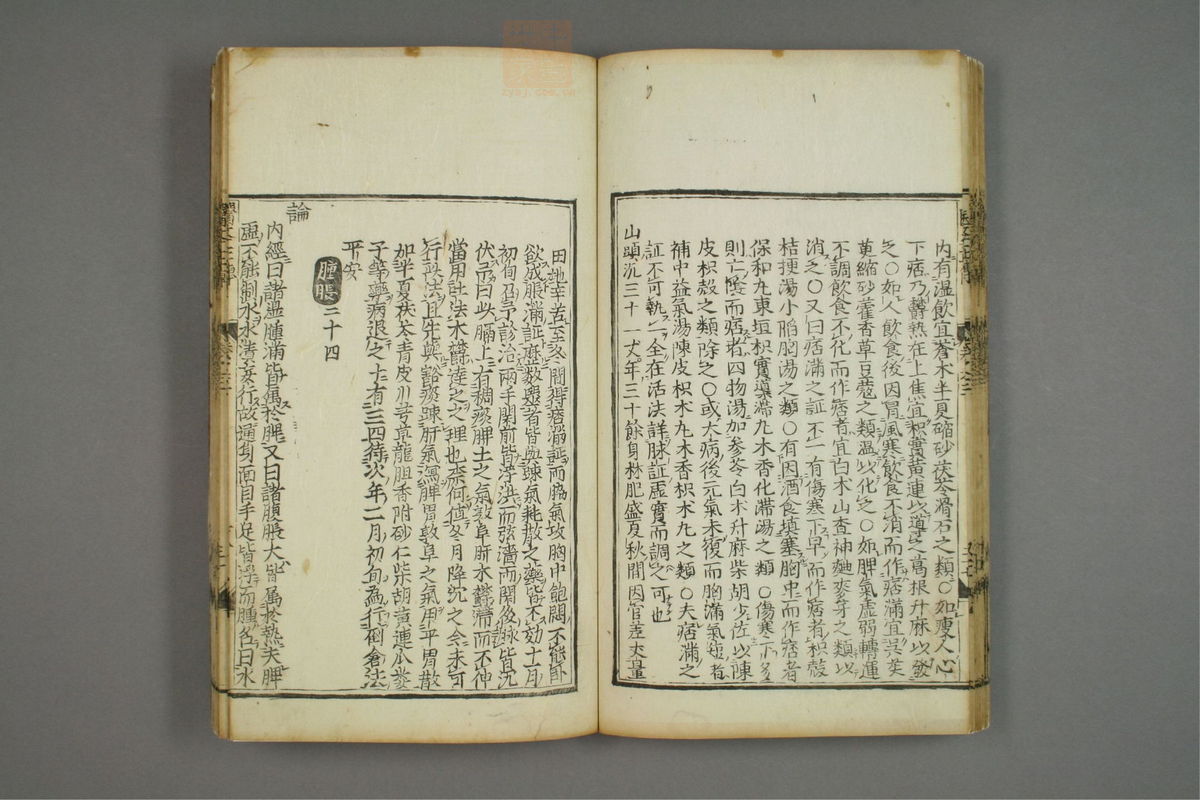 內有濕飲宜蒼朮半夏縮砂茯苓滑石之類○如瘦人心
下痞乃鬱熱在上焦宜枳實黃連以導之葛根升麻以發
之○如人飲食後因冒風寒飲食不消而作痞滿宜吳茱
萸縮砂藿香草豆蔻之類溫以化之○如脾氣虛弱轉運
不調飲食不化而作痞者宜白朮山查神麯麥芽之類以
消之○又曰痞滿之証不一有傷寒下早而作痞者枳殼
桔梗湯小陷胸湯之類○有因酒食填塞胸中而作痞者
保和丸東垣枳實導滯丸木香化滯湯之類○傷寒下多
則亡陰而痞者四物湯加參苓白朮升麻柴胡少佐以陳
皮枳殼之類除之○或大病後元氣未復而胸滿氣短者
補中益氣湯陳皮枳朮丸木香枳朮丸之類○夫痞滿之
証不可執一全在活法詳脉証虛實而調之可也
山頭沉三十一丈年三十餘身材肥盛夏秋間因官差丈量
田地辛苦至冬間得痞滿証而脇氣攻胸中飽悶不能卧
欲成脹滿証歷數醫者皆與疎氣耗散之藥皆不効十一月
初旬召予診治兩手關前皆浮洪而弦濇兩關後脉皆沉
伏予曰此膈上有稠痰脾土之氣敦阜肝木鬱滯而不伸
當用吐法木鬱達之之理也柰何值冬月降沉之令未可
行此法且先與豁痰疎肝氣瀉脾胃敦阜之氣用平胃散
加半夏茯苓青皮川芎草龍胆香附砂仁柴胡黃連瓜蔞
子等藥病退之十有三四待次年二月初旬為行倒倉法
平安
腫脹二十四
論
內經曰諸溫腫滿皆属於脾又曰諸腹脹大皆属於熱夫脾
虛不能制水水漬妄行故通身面目手足皆浮而腫名曰水